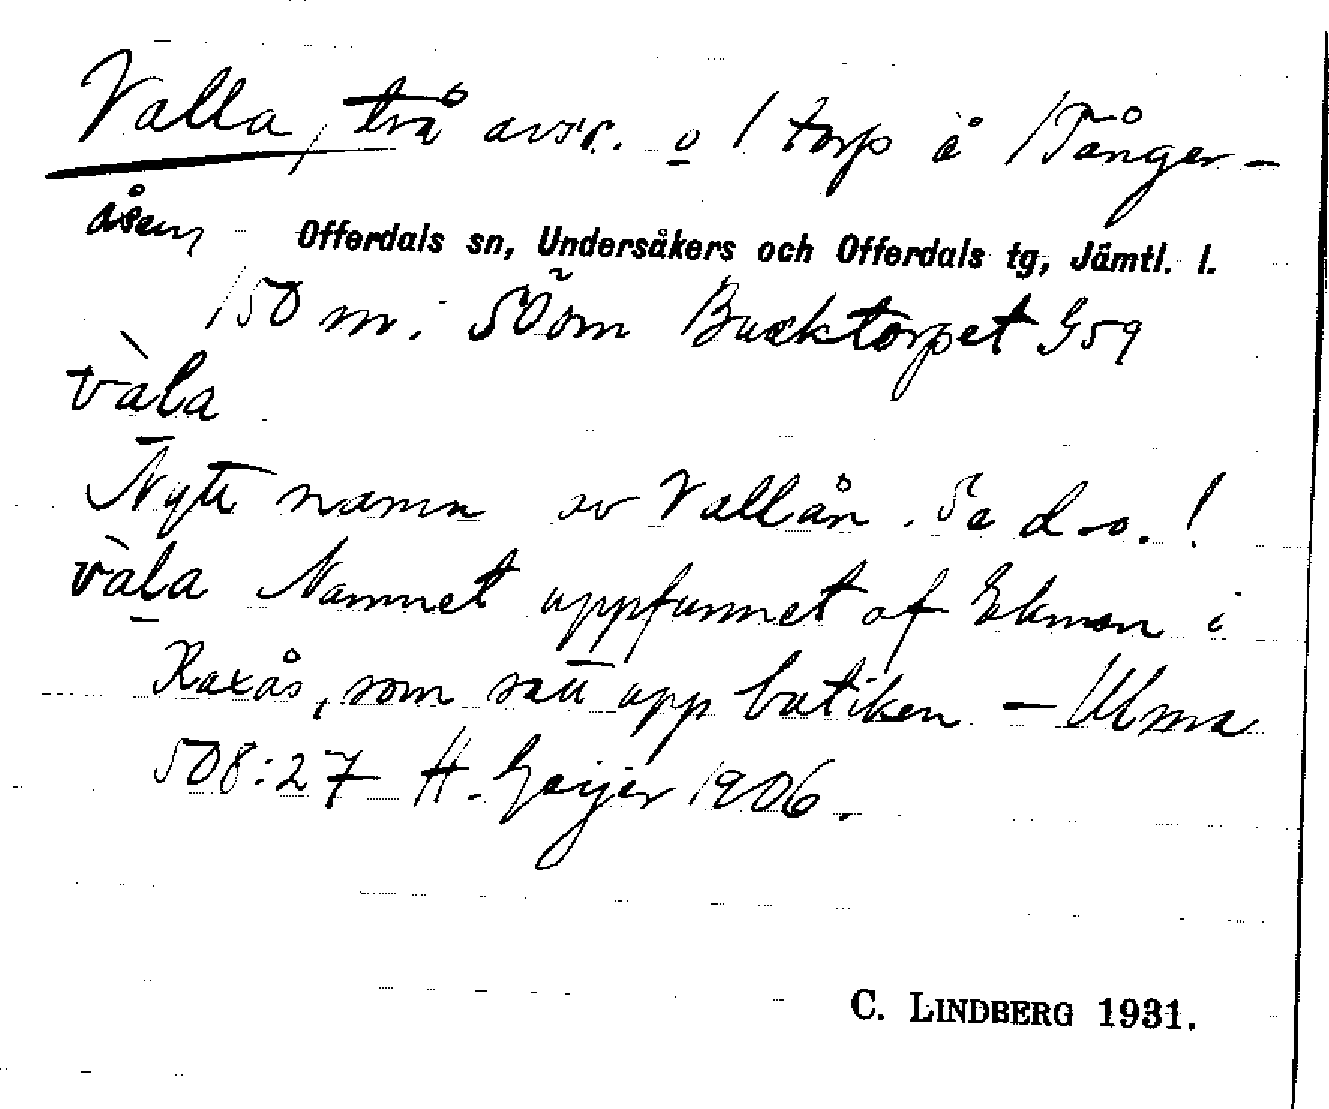 Valla, två avsr. o 1 torp å 1 Tånger-
åsen,
Offerdals sn, Undersåkers och Offerdals tg, Jämtl. l.
150 m. SÖ om Backtorpet G59
vàla
Nytt namn av Vallån. Sa d-o.!
vàla Namnet uppfunnet af Ekman i
Raxås, som satt upp butiken - Ulma
508:27 H. Geijer 1906.
C. LINDBERG 1931.